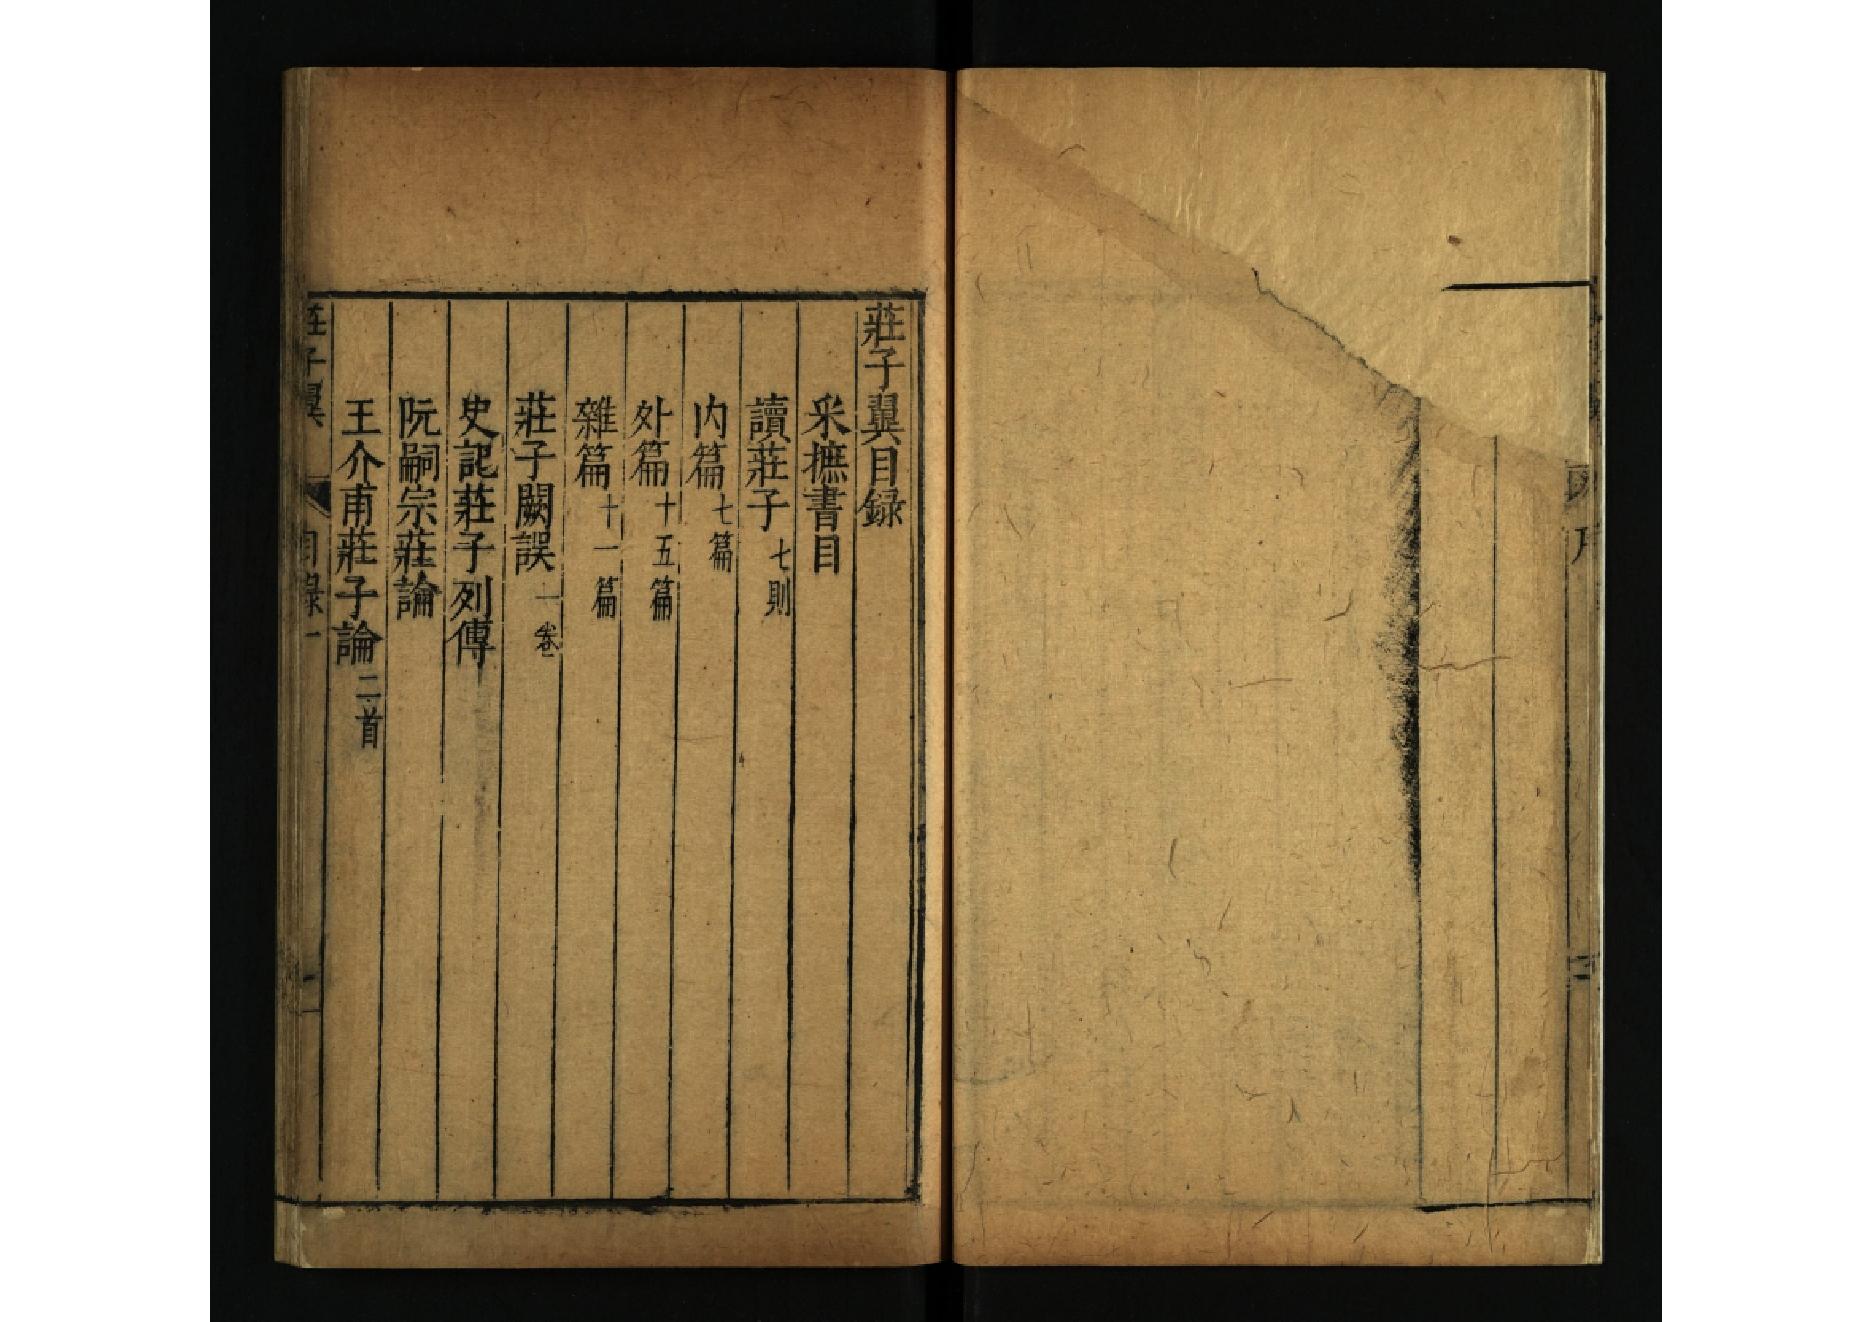 莊子翼目錄
采摭書目
讀莊子 七則
内篇 七篇
外篇 十五篇
雜篇 十一篇
莊子闕誤 一卷
史記莊子列傳
阮嗣宗莊論
王介甫莊子論 二首
莊子翼 目錄 一